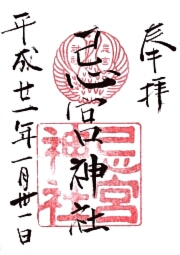 奉拝
忌宮神社
平成廿一年一月卅一日
忌宮
神社